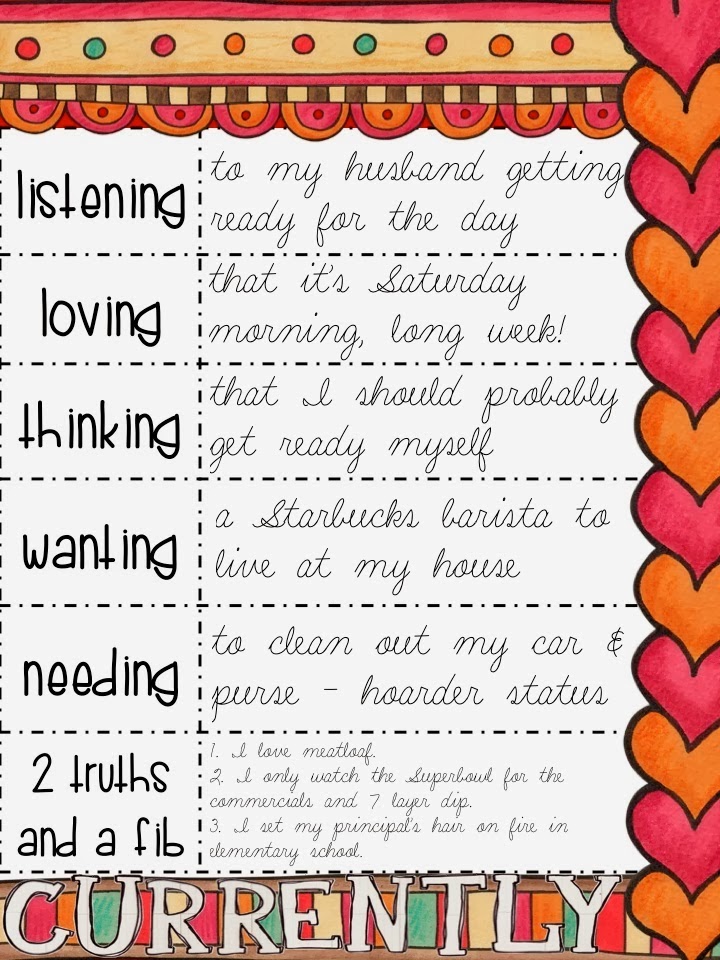 listening
to my husband getting
ready for the day
loving
that it's Saturday
morning, long week!
thinking
that I should probably
get ready myself
wanting
a Starbucks barista to
live at my house
needing
to clean out my car &
purse - hoarder status
2 truths
and a fib
1. I love meatloaf.
2. I only watch the Superbowl for the
commercials and 7 layer dip.
3. I set my principal's hair on fire in
elementary school.
CURRENTLY